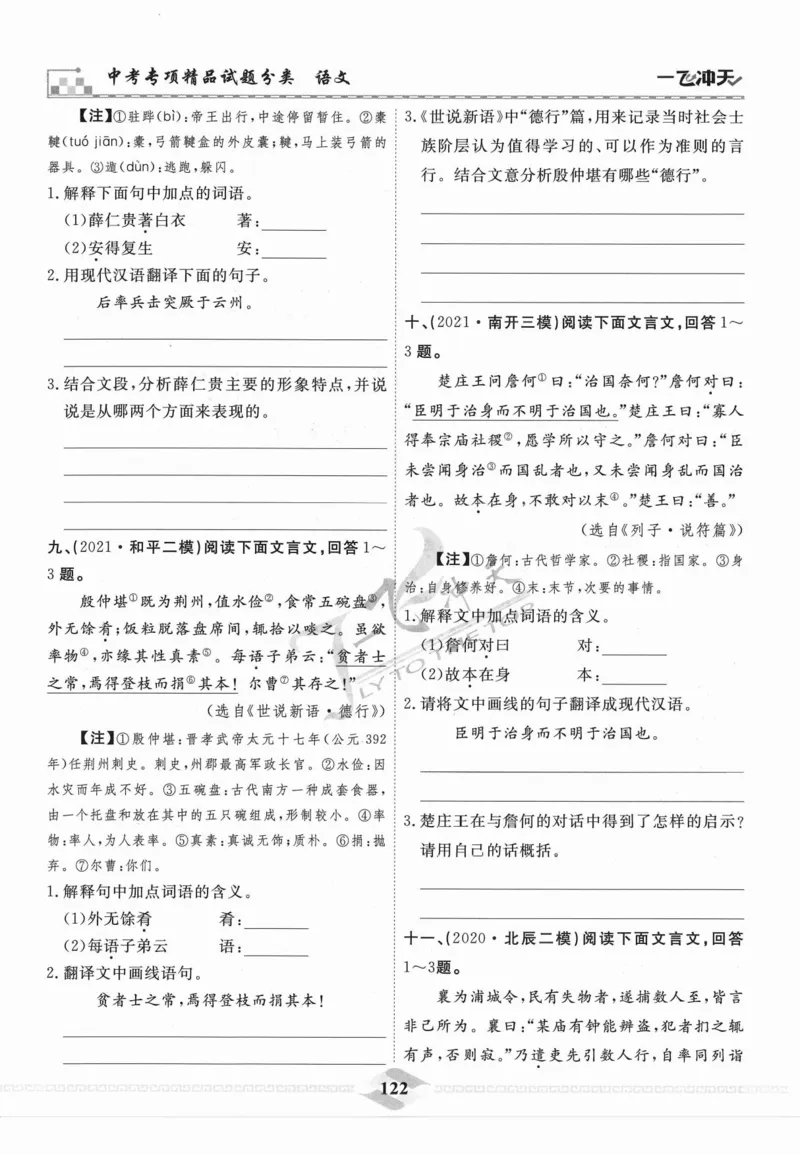 中考专项精品试题分类 语文
一飞冲天
【注】①驻跸(bì):帝王出行,中途停留暂住。②櫜
鞬(tuó jiān):櫜,弓箭鞬盒的外皮囊;鞬,马上装弓箭的
器具。③遁(dùn):逃跑,躲闪。
1.解释下面句中加点的词语。
(1)薛仁贵著白衣 著:
(2)安得复生 安:
2.用现代汉语翻译下面的句子。
后率兵击突厥于云州。
3.结合文段,分析薛仁贵主要的形象特点,并说
说是从哪两个方面来表现的。
九、(2021·和平二模)阅读下面文言文,回答1~
3题。
殷仲堪①既为荆州,值水俭②,食常五碗盘③,
外无馀肴;饭粒脱落盘席间,辄拾以啖之。虽欲
率物④,亦缘其性真素⑤。每语子弟云:“贫者士
之常,焉得登枝而捐⑥其本!尔曹⑦其存之!”
(选自《世说新语·德行》)
【注】①殷仲堪:晋孝武帝太元十七年(公元392
年)任荆州刺史。刺史,州郡最高军政长官。②水俭:因
水灾而年成不好。③五碗盘:古代南方一种成套食器,
由一个托盘和放在其中的五只碗组成,形制较小。④率
物:率人,为人表率。⑤真素:真诚无饰;质朴。⑥捐:抛
弃。⑦尔曹:你们。
1.解释句中加点词语的含义。
(1)外无馀肴 肴:
(2)每语子弟云 语:
2.翻译文中画线语句。
贫者士之常,焉得登枝而捐其本!
3.《世说新语》中“德行”篇,用来记录当时社会士
族阶层认为值得学习的、可以作为准则的言
行。结合文意分析殷仲堪有哪些“德行”。
十、(2021·南开三模)阅读下面文言文,回答1~
3题。
楚庄王问詹何①曰:“治国奈何?”詹何对曰:
“臣明于治身而不明于治国也。”楚庄王曰:“寡人
得奉宗庙社稷②,愿学所以守之。”詹何对曰:“臣
未尝闻身治③而国乱者也,又未尝闻身乱而国治
者也。故本在身,不敢对以末④。”楚王曰:“善。”
(选自《列子·说符篇》)
【注】①詹何:古代哲学家。②社稷:指国家。③身
治:自身修养好。④末:末节,次要的事情。
1.解释文中加点词语的含义。
(1)詹何对曰 对:
(2)故本在身 本:
2.请将文中画线的句子翻译成现代汉语。
臣明于治身而不明于治国也。
3.楚庄王在与詹何的对话中得到了怎样的启示?
请用自己的话概括。
十一、(2020·北辰二模)阅读下面文言文,回答
1~3题。
襄为浦城令,民有失物者,遂捕数人至,皆言
非己所为。襄曰:“某庙有钟能辨盗,犯者扪之辄
有声,否则寂。”乃遣吏先引数人行,自率同列诣
122